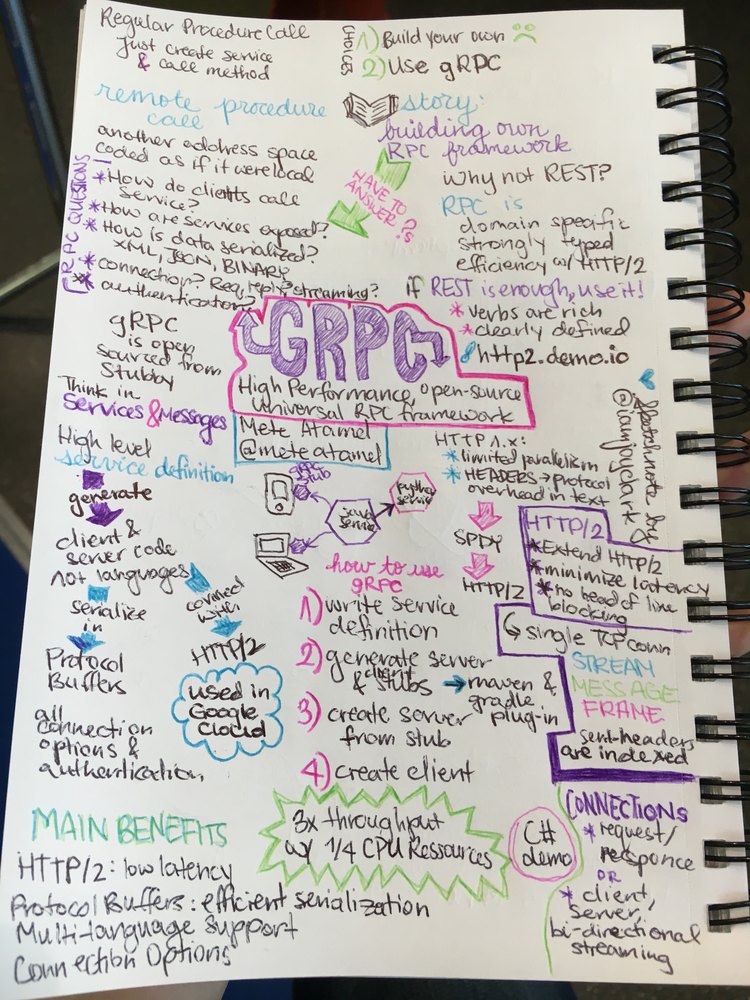 Regular Procedure Call
Just create service
& call method
CHOICES
1) Build your own
2) Use gRPC
remote procedure
call
another address space
coded as if it were local
RPC QUESTIONS
* How do clients call
service?
* How are services exposed?
* How is data serialized?
XML, JSON, BINARY
* connection? Req, reply, streaming?
* authentication?
story:
building own
RPC framework
HAVE TO
ANSWER ?s
why not REST?
RPC is
domain specific
strongly typed
efficiency w/ HTTP/2
if REST is enough, use it!
* verbs are rich
* clearly defined
http2.demo.io
Sketchnote by
@iamjayclark
GRPC
High Performance, open-source
Universal RPC framework
Mete Atamel
@meteatamel
gRPC
is open
sourced from
Stubby
Think in
Services & Messages
High level
service definition
generate
client &
server code
10+ languages
serialize
in
Protocol
Buffers
connect
with
HTTP/2
used in
Google
Cloud
all
connection
options &
authentication
gRPC
stub
java
service
python
service
HTTP 1.x:
* limited parallelism
* HEADERS → protocol
overhead in text
SPDY
HTTP/2
HTTP/2
* Extend HTTP/2
* minimize latency
* no head of line
blocking
single TCP conn
STREAM
MESSAGE
FRAME
sent-headers
are indexed
how to use
gRPC
1) write service
definition
2) generate server
& client stubs → maven &
gradle
plug-in
3) create server
from stub
4) create client
3x throughput
w/ 1/4 CPU Ressources
C#
demo
CONNECTIONS
* request/
responce
OR
* client,
server,
bi-directional
streaming
MAIN BENEFITS
HTTP/2: low latency
Protocol Buffers: efficient serialization
Multi-language support
Connection Options